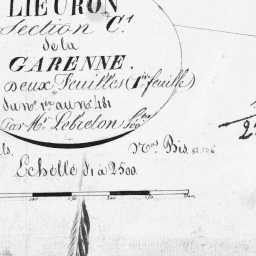 LIEURON
Section C.
de la
GARENNE.
deux Feuilles (1re feuille)
du No. 1er au No. 481
Par Mr. Lebreton Géo
Nos Bis
Echelle d 1 à 2500